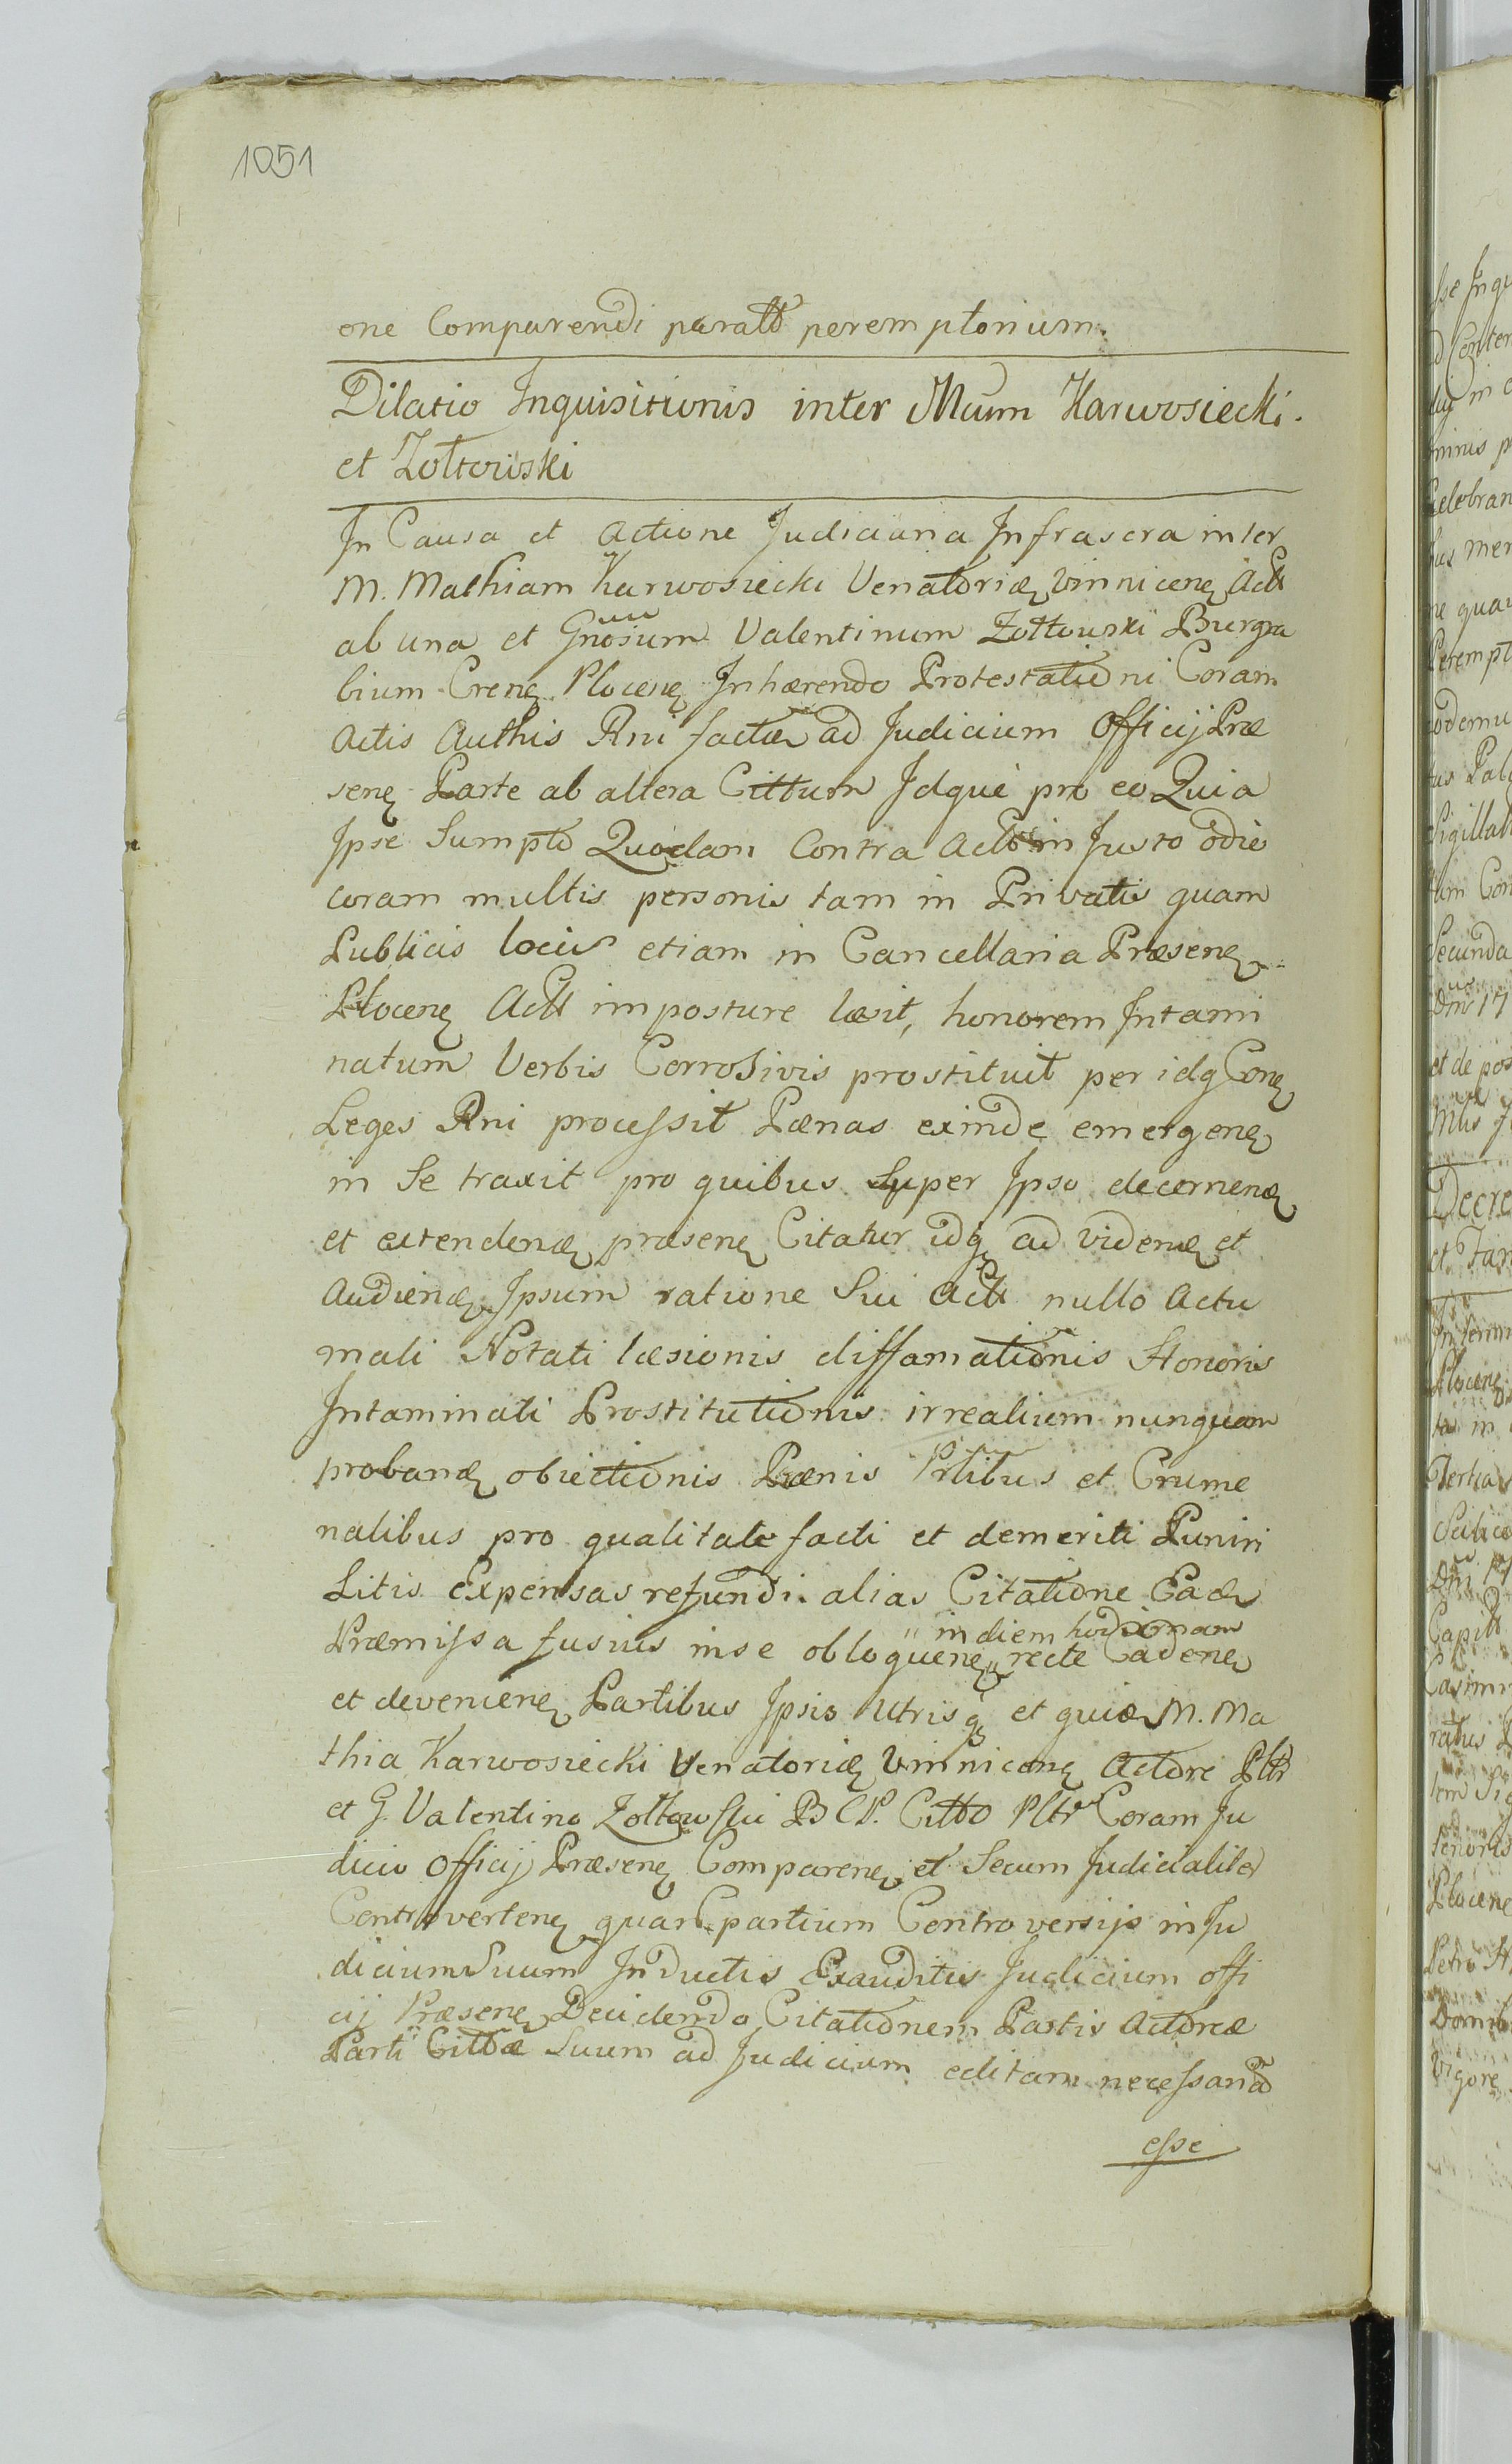 1051
one Comparendi paratt peremptorium.
Dilatio Inquisitionis inter Mum Karwosiecki.
et Zołtowski
In Causa et Actione Judiciaria Infrascra inter
M. Mathiam Karwosiecki Venatoridę Vinnicenę Actt
ab una et Gnosum Valentinum Zołtowski Burgra
bium Crenę Plocenę Inhærendo Protestationi Coram
Actis Authis Rni factæ ad Judicium Officij Præ
senę Parte ab altera Cittum Idque pro eo Quia
Ipse Sumpto Quodam Contra Act in Justo odie
coram multis personis tam in Privatis quam
Publicis locis etiam in Cancellaria Præsenę
Plocenę Actt imposture læsit, honorem Intami
natum Verbis Corrosivis prostituit per idq Conę
Leges Rni processit Pænas exinde emergenę
in Se traxit pro quibus Super Ipso decernendę
et extendendę præsenę Citatur idq ad videndę et
Audiendę Ipsum ratione Sui Actt nullo Actu
mali Notati læsionis diffamationis Honoris
Intaminati Prostitutionis irrealium nunquam
probandę obiectionis Pænis Prlibus et Crume
nalibus pro qualitate facti et demeriti Puniri
Litis Expensas refundi. alias Citatione Eadę
Præmissa fusius in se obloquenę recte Cadenę
in diem hodiernam
et devenienę Partibus Ipsis Utrisq et quidę M. Ma
thia Karwosiecki Venatoridę Vinnicenę Actore Pltr
et G. Valentino Zołtowski B C P. Citto Pltr Coram Ju
dicio Officij Præsenę Comparenę et Secum Judicialiter
Controvertenę quar partium Controversijs in Ju
dicium Suum Inductis Exauditis Judicium offi
cij Præsenę Decidendo Citationem Partis Actoreæ
Parti Cittæ Suum ad Judicium editam necessariã
esse